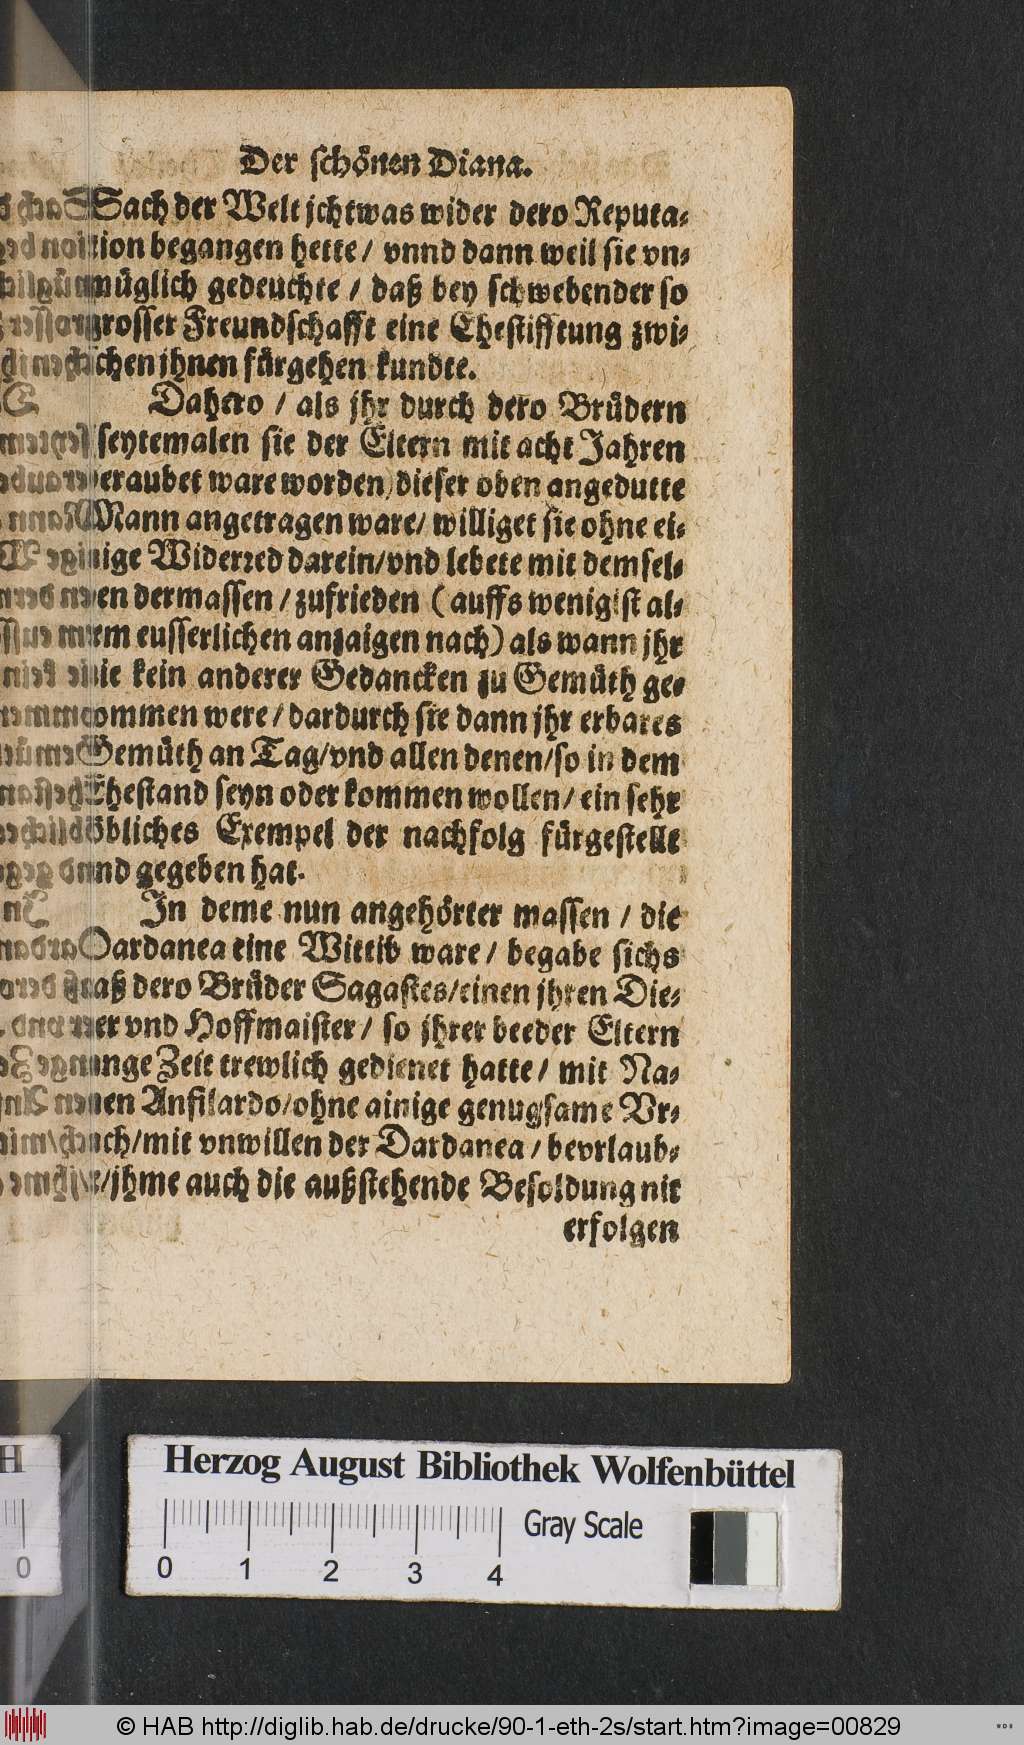 Der schönen Diana.
Sach der Welt jchtwas wider dero Reputa-
tion begangen hette / vnnd dann weil sie vn-
müglich gedeuchte / daß bey schwebender so
grosser Freundschafft eine Ehestifftung zwi-
schen jhnen fürgehen kundte.
Dahero / als jhr durch dero Brüdern
seytemalen sie der Eltern mit acht Jahren
beraubet ware worden) dieser oben angedutte
Mann angetragen ware / williget sie ohne ei-
nige Widerred darein / vnd lebete mit demsel-
ben dermassen / zufrieden (auffs wenigist al-
lem eusserlichen anzaigen nach) als wann jhr
nie kein anderer Gedancken zu Gemüth ge-
kommen were / dardurch sie dann jhr erbares
Gemüth an Tag / vnd allen denen / so in dem
Ehestand seyn oder kommen wollen / ein sehr
löbliches Exempel der nachfolg fürgestellt
vnnd gegeben hat.
In deme nun angehörter massen / die
Dardanea eine Wittib ware / begabe sichs
daß dero Brüder Sagastes / einen jhren Die-
ner vnd Hoffmaister / so jhrer beeder Eltern
lange Zeit trewlich gedienet hatte / mit Na-
men Anfilardo / ohne ainige genugsame Vr-
sach / mit vnwillen der Dardanea / bevrlaub-
t / jhme auch die außstehende Besoldung nit
erfolgen
Herzog August Bibliothek Wolfenbüttel
0 1 2 3 4 Gray Scale
H
0
© HAB http://diglib.hab.de/drucke/90-1-eth-2s/start.htm?image=00829